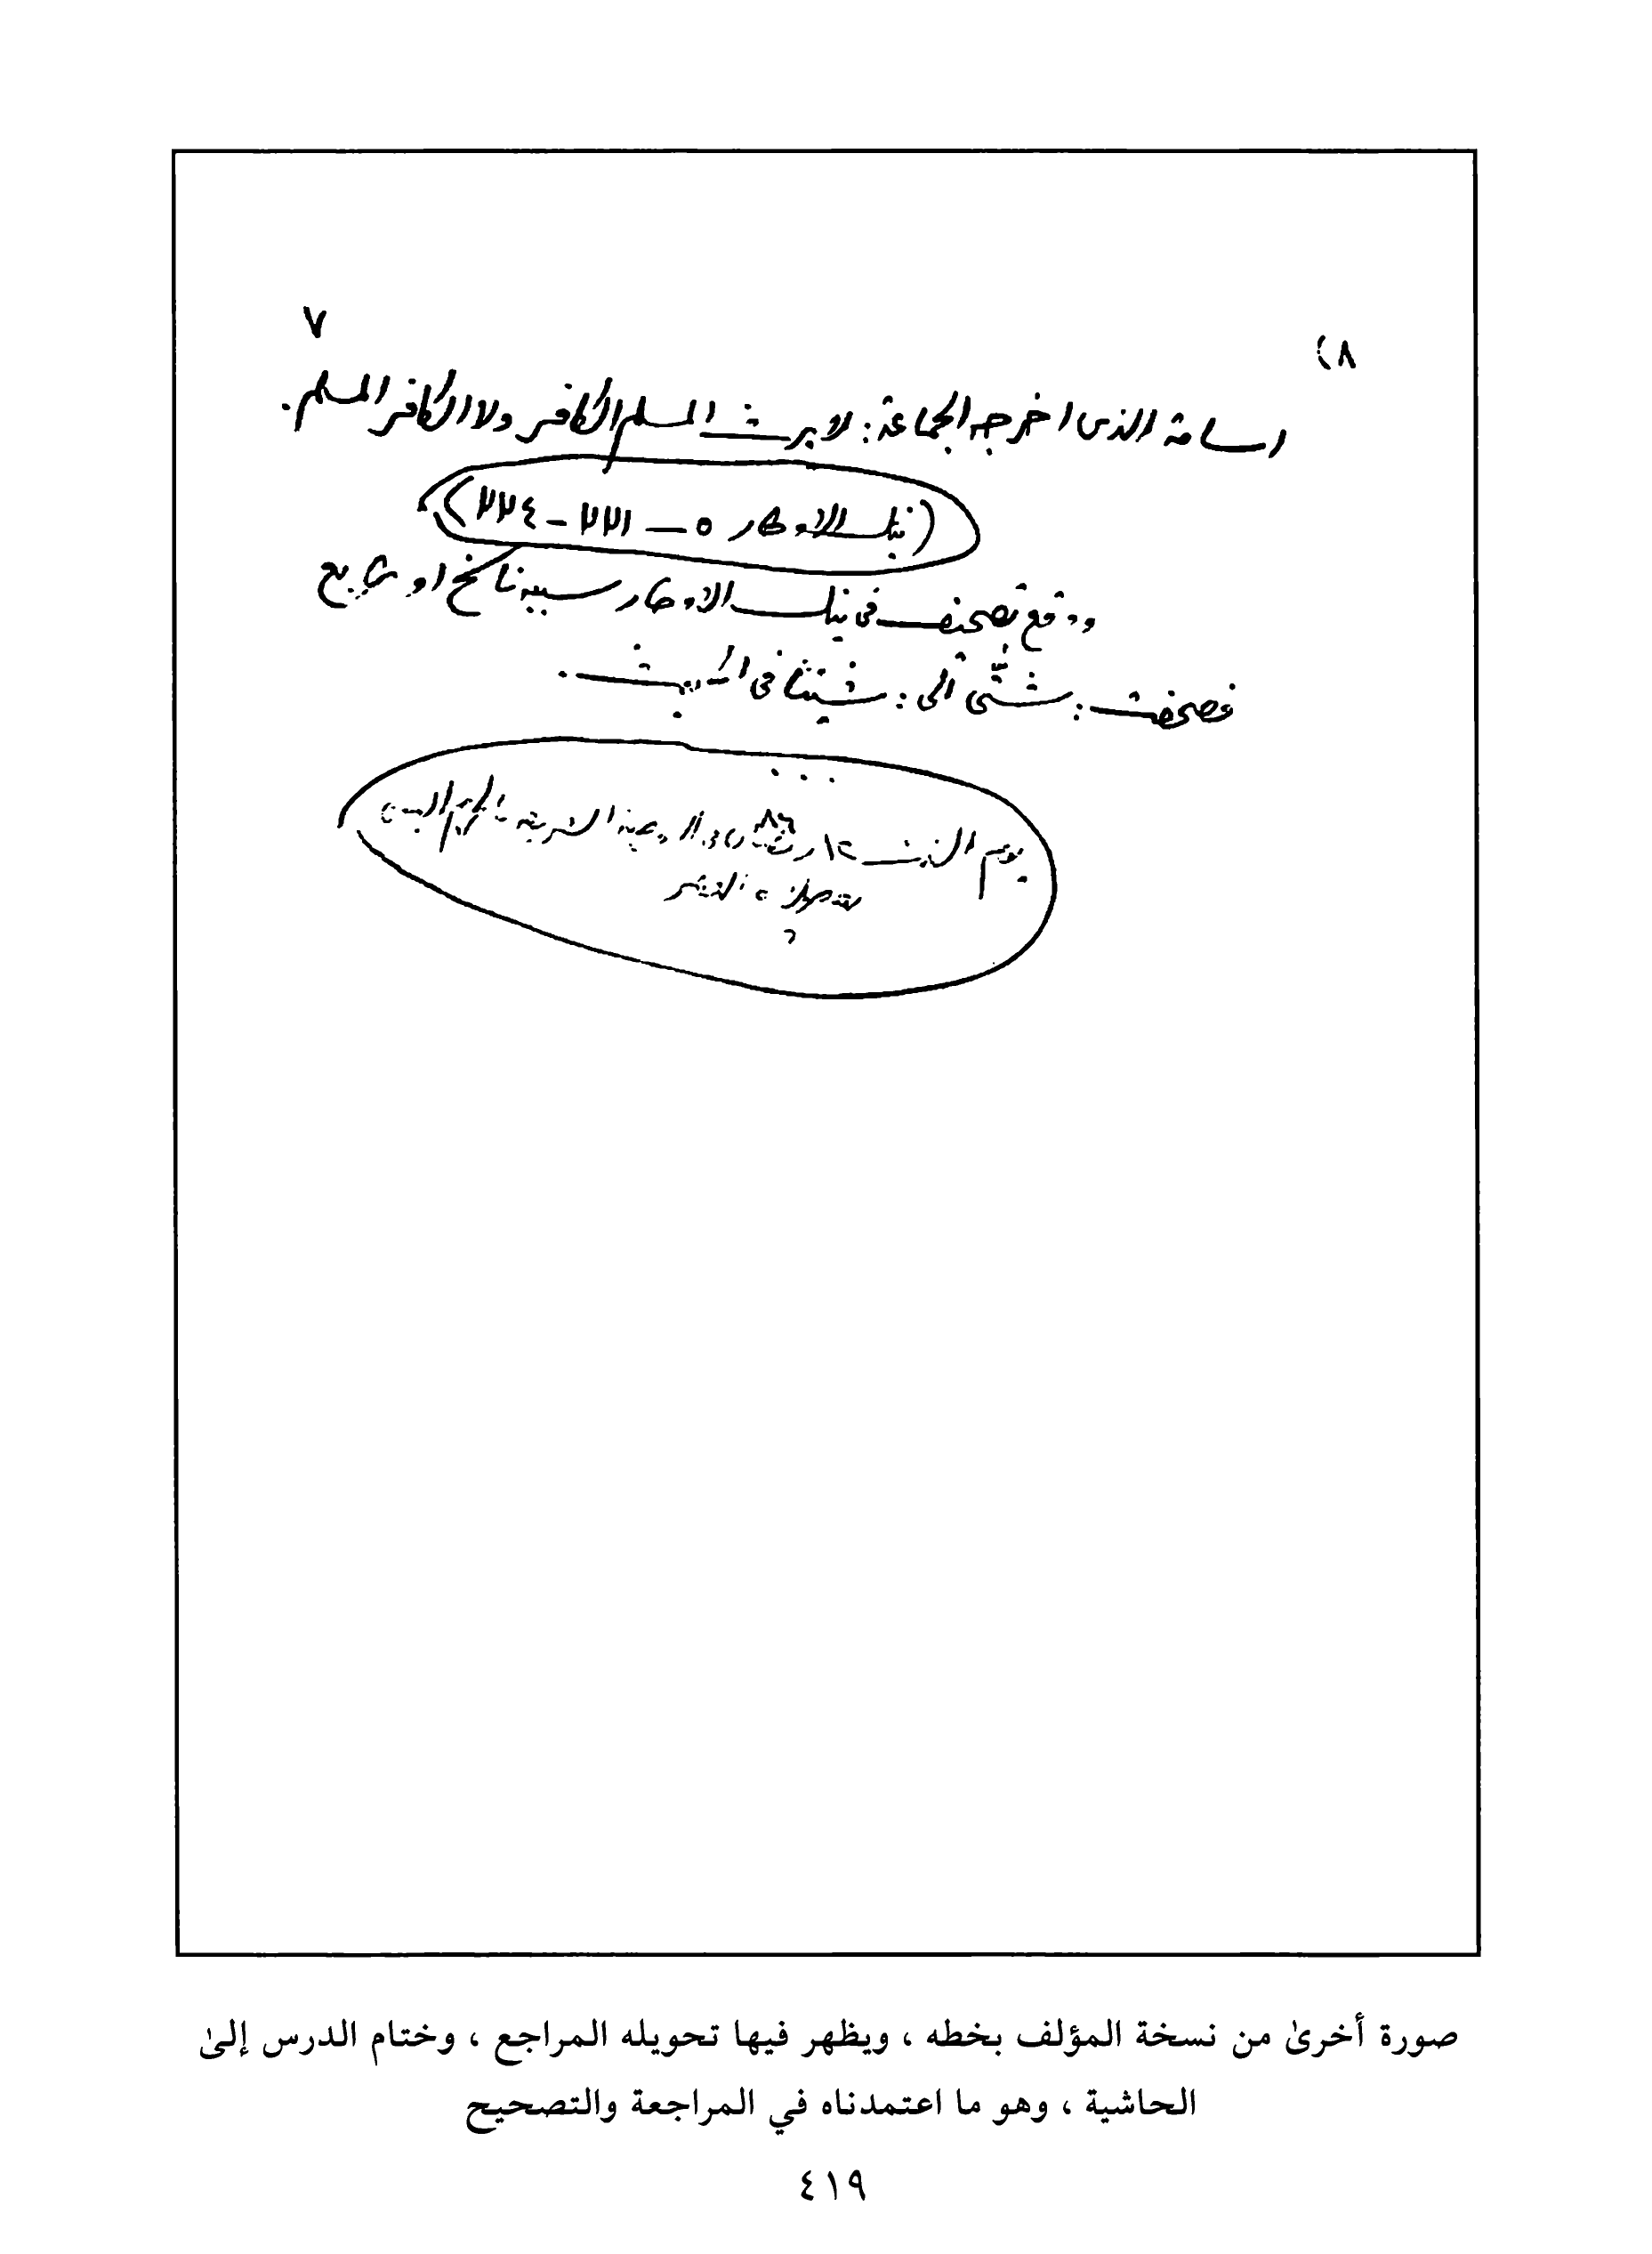 ٧
٨)
اسامة الذى اخرجه الجماعة: لا يرث المسلم الكافر ولا الكافر المسلم.
(نيل الاوطار ٥ — ٢٢١ - ٢٢٤)
ووقع تصحيف فى نيل الاوطار سببه ناسخ او طابع
فصحفت: شتّى الى: شيئا فى الحديث.
يوم السبت ١٢ رمضان ٨٦ الشريفة
صورة أخرىٰ من نسخة المؤلف بخطه ، ويظهر فيها تحويله المراجع ، وختام الدرس إلىٰ
الحاشية ، وهو ما اعتمدناه في المراجعة والتصحيح
٤١٩